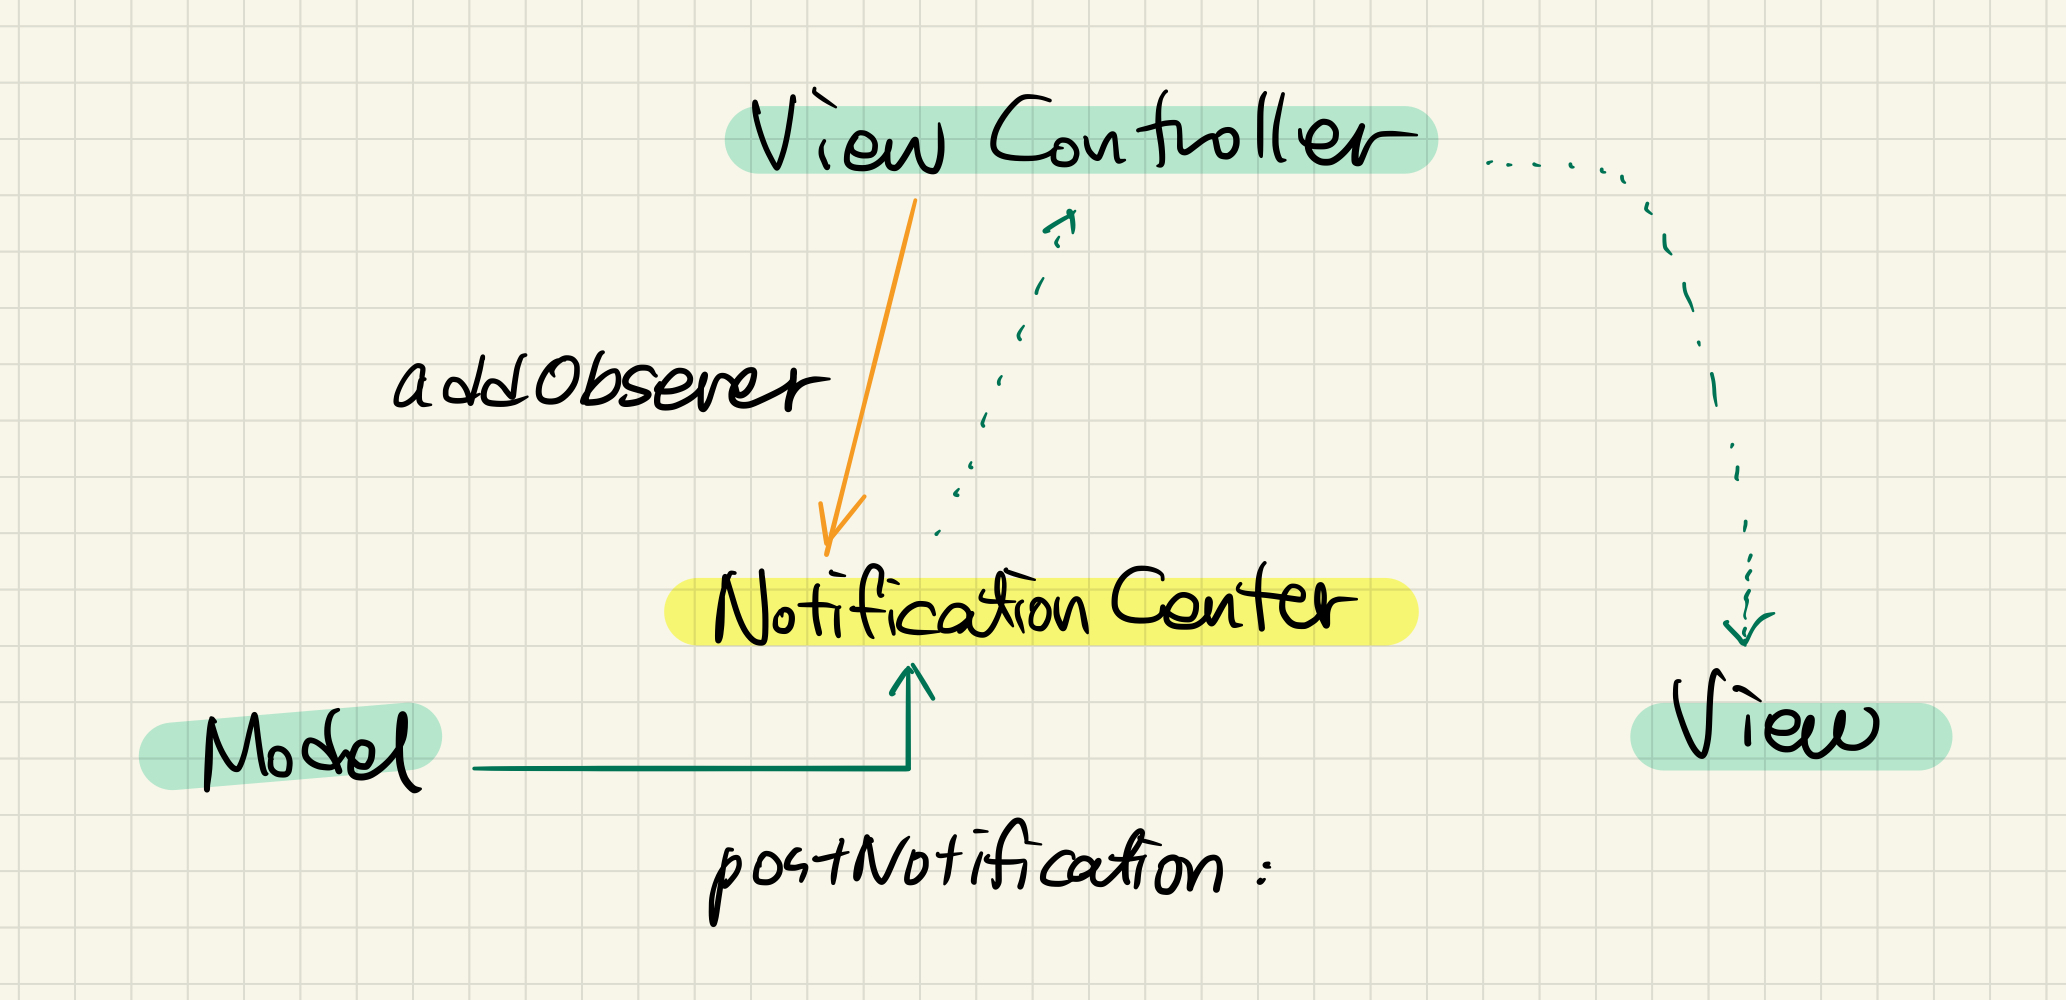 View Controller
addObserver
Notification Center
Model
View
postNotification: